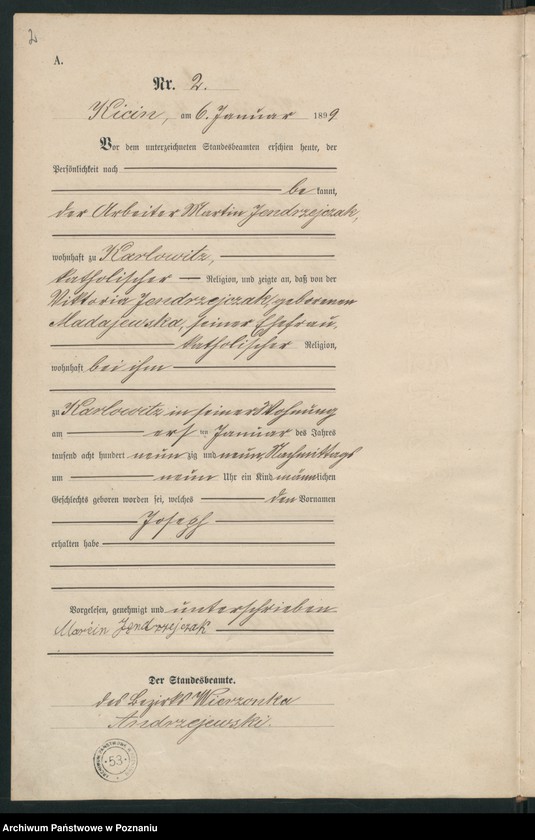 2
A.
Nr. 2.
Kicin, am 6. Januar 1899
Vor dem unterzeichneten Standesbeamten erschien heute, der
Persönlichkeit nach
be kannt,
der Arbeiter Martin Jendrzejczak,
wohnhaft zu Karlowitz,
katholischer Religion, und zeigte an, daß von der
Viktoria Jendrzejczak, geborenen
Madajewska, seiner Ehefrau,
katholischer Religion,
wohnhaft bei ihm
zu Karlowitz in seiner Wohnung
am ersten Januar des Jahres
tausend acht hundert neunzig und neun, Nachmittags
um neun Uhr ein Kind männlichen
Geschlechts geboren worden sei, welches den Vornamen
Joseph
erhalten habe
Vorgelesen, genehmigt und unterschrieben
Marcin Jendrzejczak
Der Standesbeamte.
des Bezirks Wierzonka
Andrzejewski.
53
Archiwum Państwowe w Poznaniu